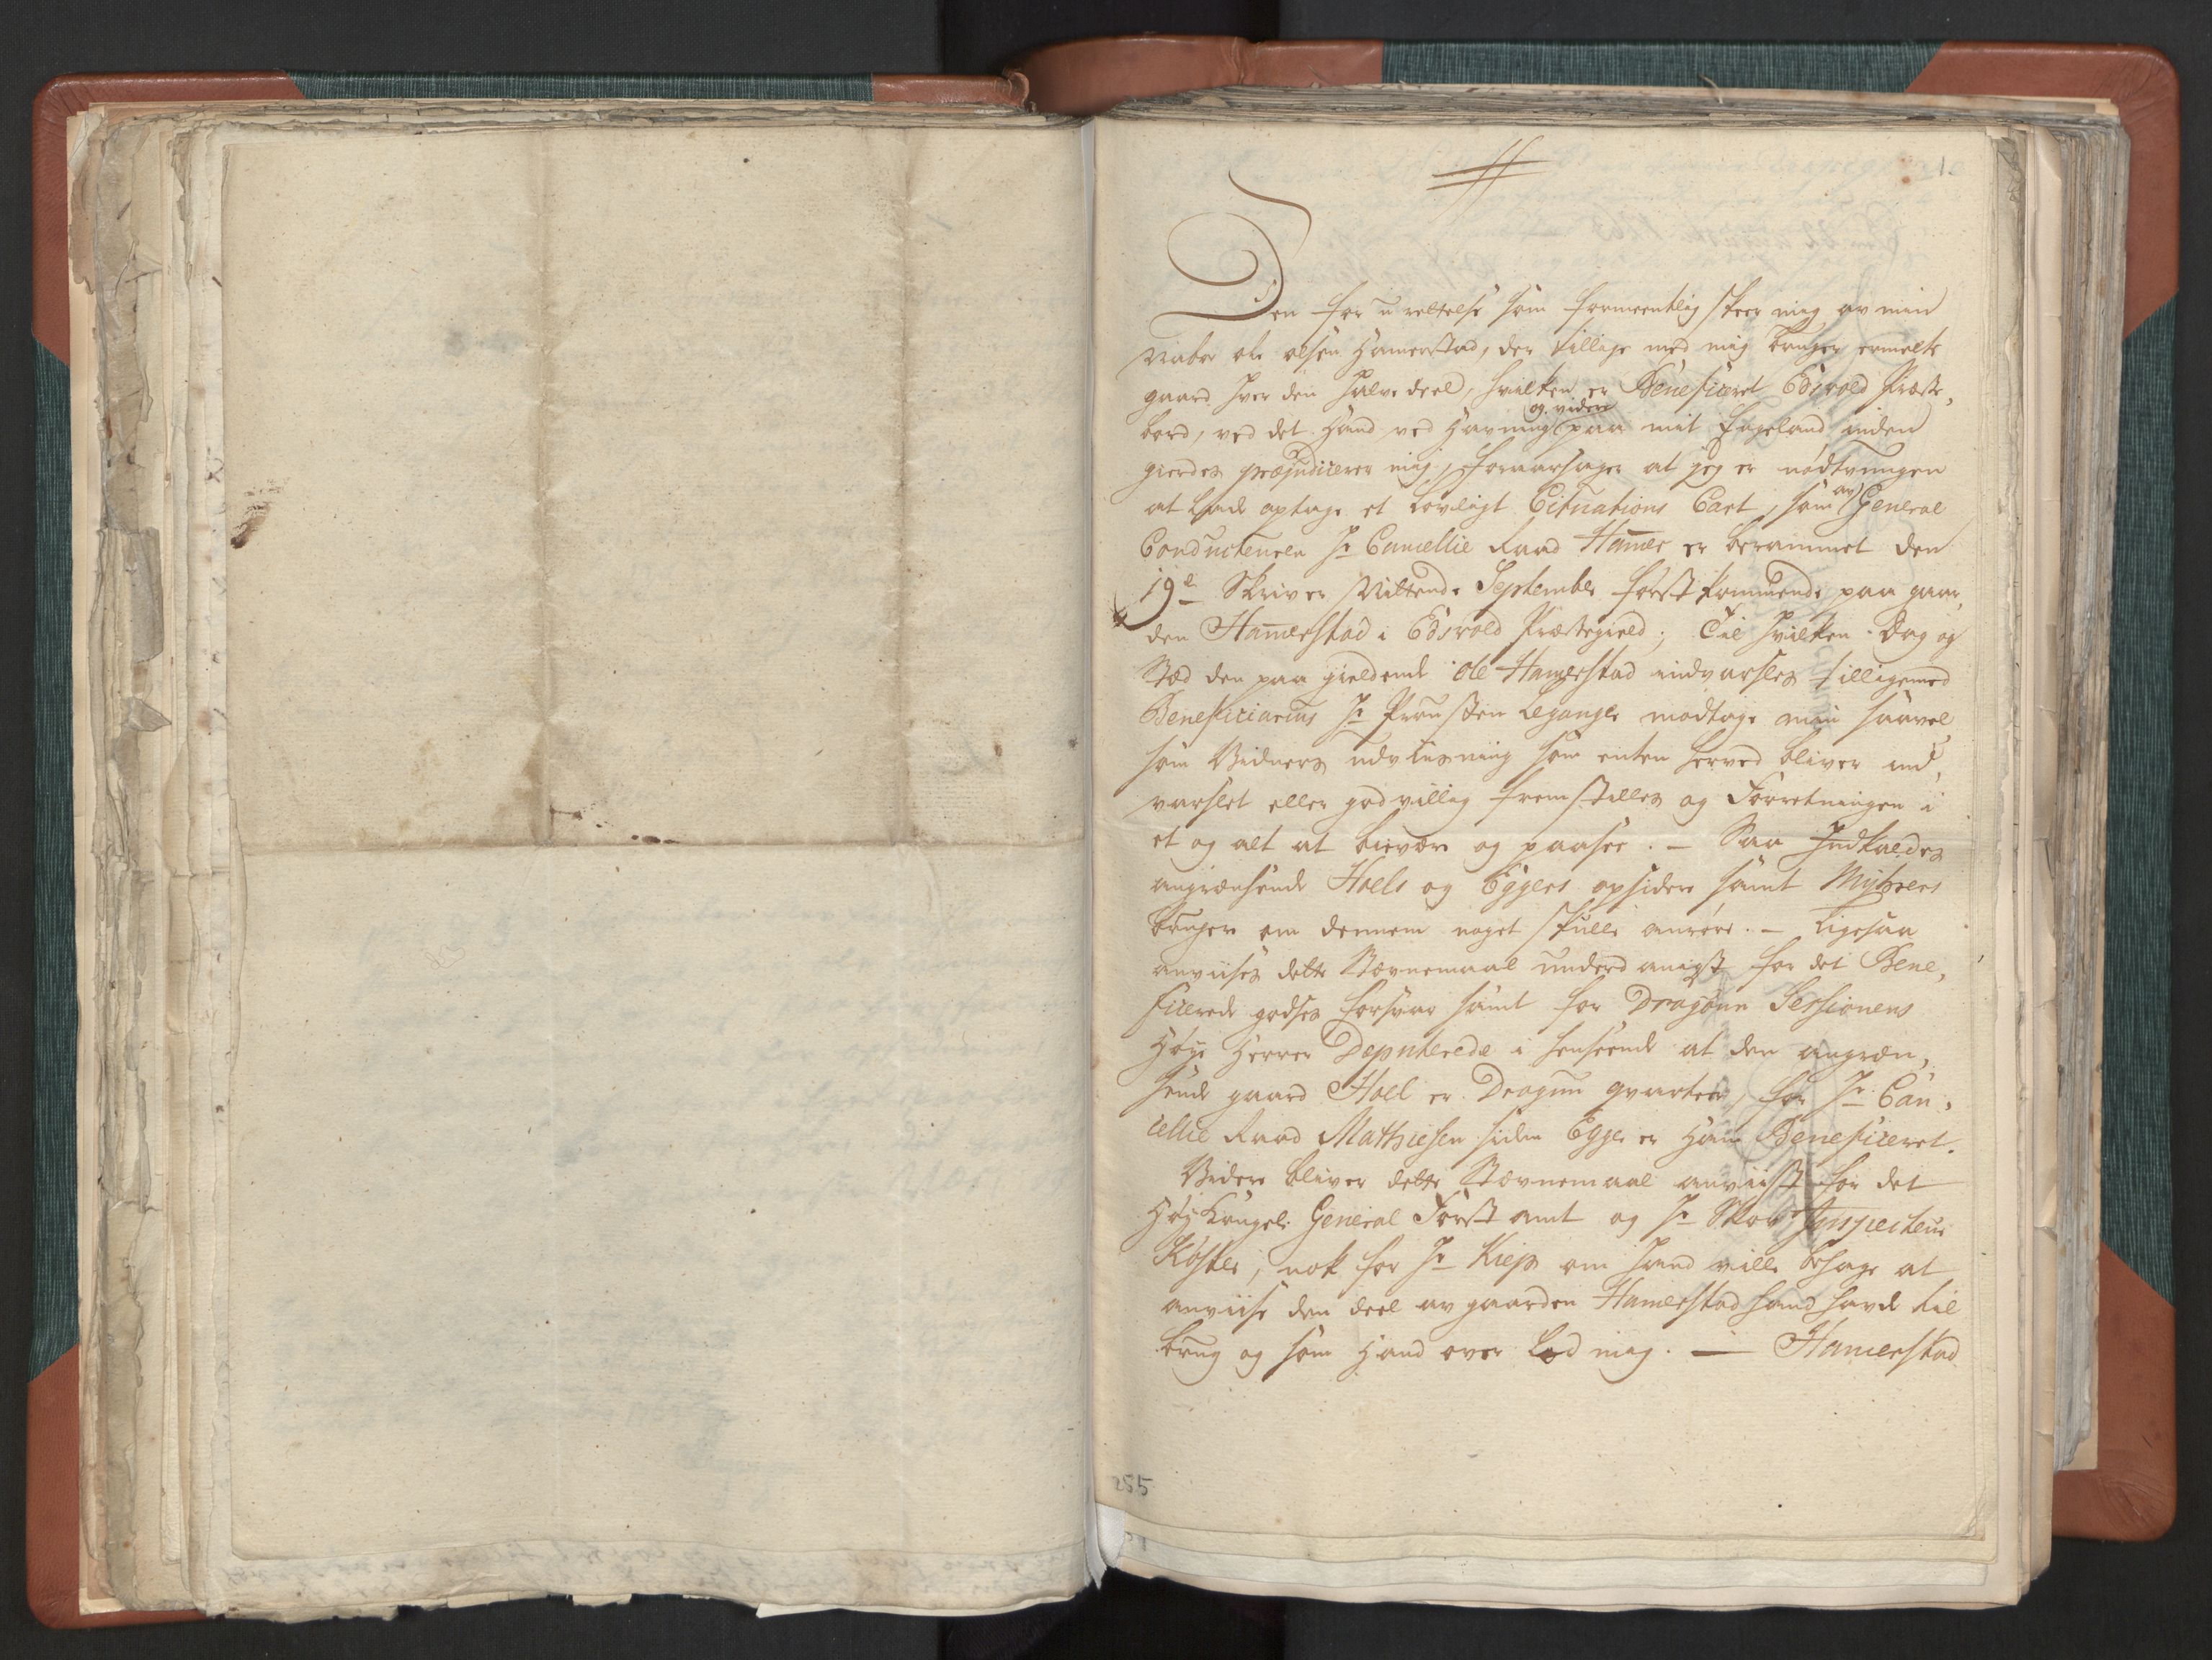 1.
Den for u rettelse som formeentlig skeer mig av min
Nabor ole olsen Hamerstad, der tillige med mig bruger ermelte
gaard hver den halve deel, hvilken er Beneficeret Edsvold Præste,
bord, ved det Hand ved Havning og viden paa mit Engeland inden
gierdes præjudicerer mig, foraarsager at jeg er nødtvungen
at Lade optage et Lovligt Cituations Cart, som av General
Conducteuren Hr Cancellie Raad Hamer er berammet den
19de Skriver Nittende September først kommende paa gaar,
den Hamerstad i Edsvold Præstegield; Til hvilken Dag og
Stæd den paa gieldende Ole Hamerstad indvarsles tilligemed
Beneficiarius Hr Prousten Leganger modtage min saavel
som Vidners udviisning som enten herved bliver ind,
varslet eller godvillig fremstilles og Forretningen i
et og alt at bievære og paasee. - Saa Indkaldes
angrænsende Hoels og Egges opsidere samt Myhrens
bruger om dennem noget skulle anrøre. - Ligesaa
anviises dette Stævnemaal underdanigst for det Bene,
ficerede godses forsvar samt for Dragoun Sessionens
Høye Herrer Deputerede i henseende at den angræn,
sende gaard Hoel er Dragun qvarteer, for Hr Can,
cellie Raad Mathiesen siden Egge er Ham Beneficeret.
Videre bliver dette Stævnemaal anviist for det
Høy Kongel. General Forst amt og Hr Skov Inspecteur
Køster, nok for Hr Kieps om hand ville behage at
anviise den deel av gaarden Hamerstad hand havde til
brug og som Hand over Lod mig. — Hamerstad
255